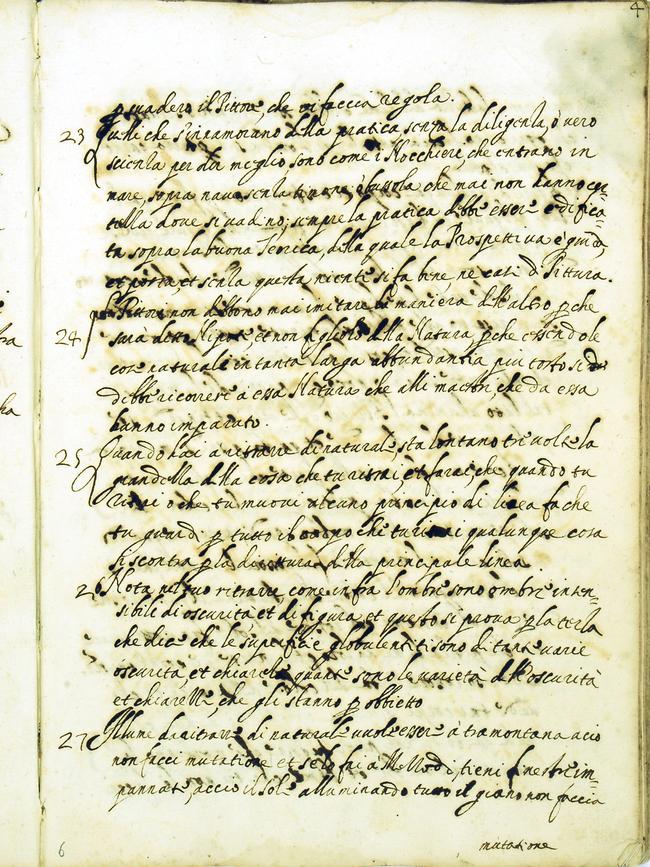 4
p suadero il Pittore, che vi faccia regola.
23 Quelli che s'innamorano della pratica senza la diligenza, o vero
scienza per dir meglio sono come i Nocchieri, che entrano in
mare, sopra nave senza timone, o bussola che mai non hanno cer=
tezza dove si vadino; sempre la pratica debbe essere edifica=
ta sopra la buona Teorica, della quale la Prospettiva è guida,
et porta, et senza questa niente si fa bene, ne casi di Pittura.
24 Pittori non debbono mai imitare la maniera dell'altro p che
sarà detto Nipote et non figliolo della Natura, p che essendo le
cose naturali in tanta larga abbundantia piu tosto si
debbe ricorrere a essa Natura che alli maestri, che da essa
hanno imparato.
25 Quando hai a ritrarre di naturale sta lontano tre volte la
grandezza della cosa che tu ritrai, et farai, che quando tu
ritrai o che tu muovi alcuno principio di linea fa che
tu guardi p tutto il corpo che tu ritrai qualunque cosa
si scontra p la dirittura della principale linea
26 Nota nel tuo ritrarre, come infra l'ombre sono ombre insen=
sibili di oscurità et di figura, et questo si prova p la terza
che dice che le superficie globulenti sono di tante varie
oscurità, et chiarezze quante sono le varietà dell'oscurità
et chiarezze, che gli stanno p obbietto
27 Il lume da ritrarre di naturale vuole essere à tramontana acciò
non facci mutatione et se lo fai a Mezzodi, tieni finestre im=
pannate, acciò il Sole alluminando tutto il giorno non faccia
mutatione
6